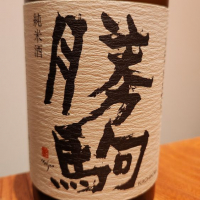 純米酒
勝駒